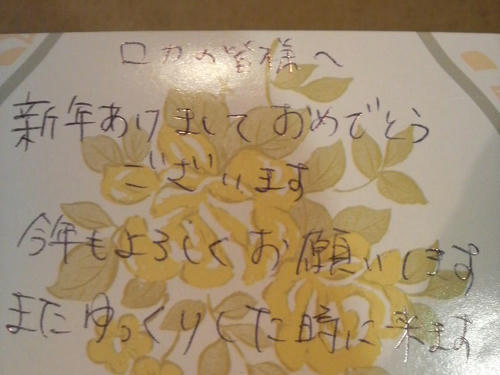 ロカの皆様へ
新年あけましておめでとう
ございます
今年もよろしくお願いします
またゆっくりした時に来ます